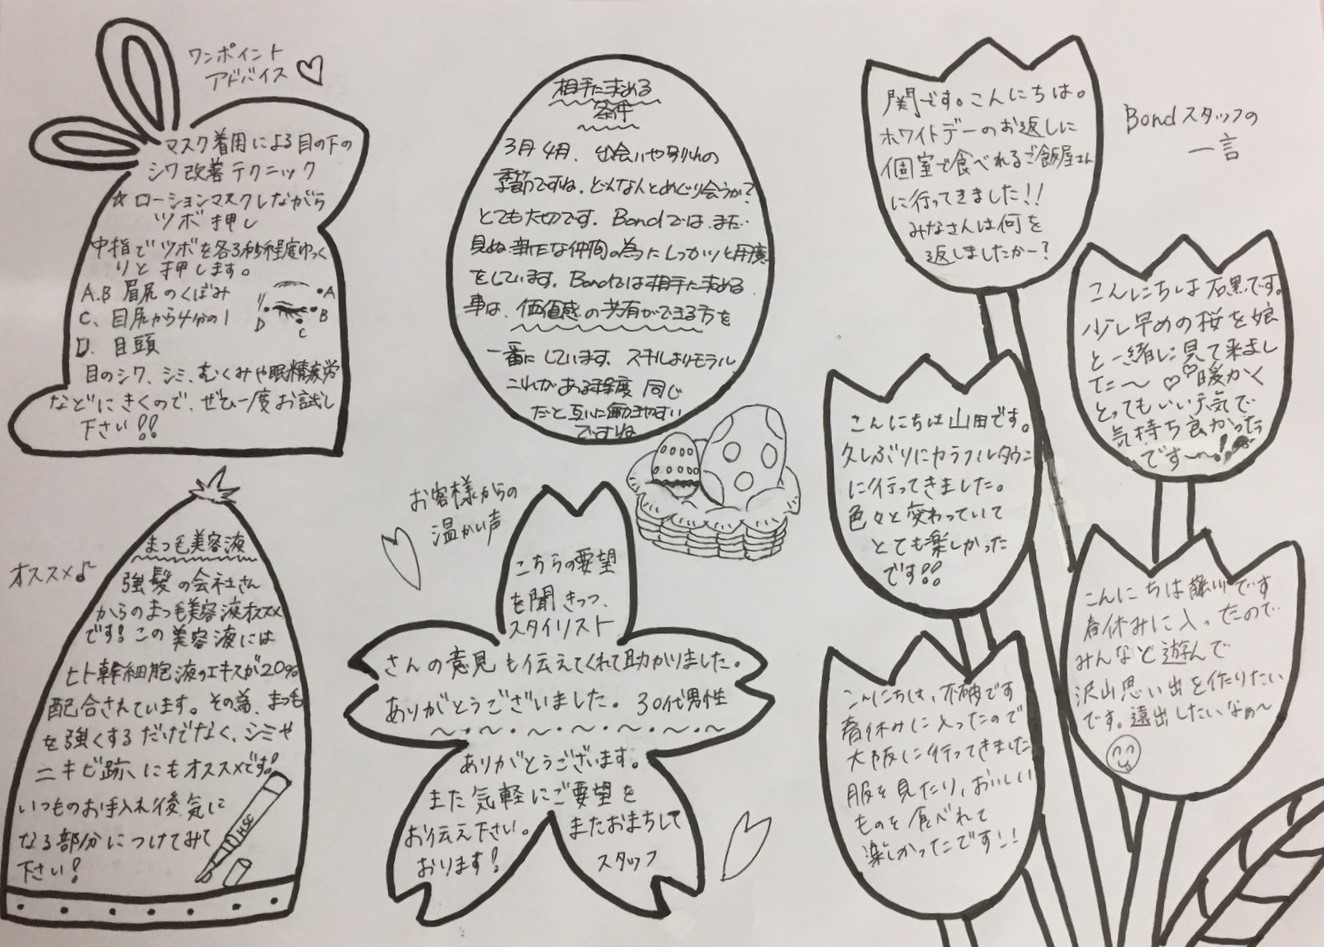 ワンポイント
アドバイス
マスク着用による目の下の
シワ改善テクニック
☆ローションマスクしながら
ツボ押し
中指でツボを各3秒程度ゆっく
りと押します。
A.B 眉尻のくぼみ
C、目尻から4分の1
D. 目頭
A
B
C
D
目のシワ、シミ、むくみや眼精疲労
などにきくので、ぜひ一度お試し
下さい!!
相手に求める
条件
3月4月、出会いや別れの
季節ですね。どんな人とめぐり会うか?
とても大切です。Bondでは、まだ
見ぬ新たな仲間の為にしっかりと用意
をしています。Bondでは相手に求める
事は、価値感の共有ができる方を
一番にしています。スキルよりモラル
これがある程度同じ
だと互いに働きやすい
ですね
Bondスタッフの
一言
関です。こんにちは。
ホワイトデーのお返しに
個室で食べれるご飯屋さん
に行ってきました!!
みなさんは何を
返しましたかー?
こんにちは石黒です。
少し早めの桜を娘
と一緒に見て来まし
た〜♡♡暖かく
とってもいい天気で
気持ち良かった
です〜!
こんにちは山田です。
久しぶりにカラフルタウン
に行ってきました。
色々と変わっていて
とても楽しかった
です!!
こんにちは藤川です
春休みに入ったので
みんなと遊んで
沢山思い出を作りたい
です。遠出したいなぁ〜
こんにちは、不柄です
春休みに入ったので
大阪に行ってきました
服を見たり、おいしい
ものを食べれて
楽しかったです!!
オススメ♪
まつ毛美容液
強髪の会社さん
からのまつ毛美容液オススメ
です!この美容液には
ヒト幹細胞液のエキスが20%
配合されています。その為、まつ毛
を強くするだけでなく、シミや
ニキビ跡、にもオススメです!
いつものお手入れ後気に
なる部分につけてみて
下さい!
HSC
お客様からの
温かい声
こちらの要望
を聞きつつ、
スタイリスト
さんの意見も伝えてくれて助かりました。
ありがとうございました。30代男性
ありがとうございます。
また気軽にご要望を
お伝え下さい。またおまちして
おります! スタッフ